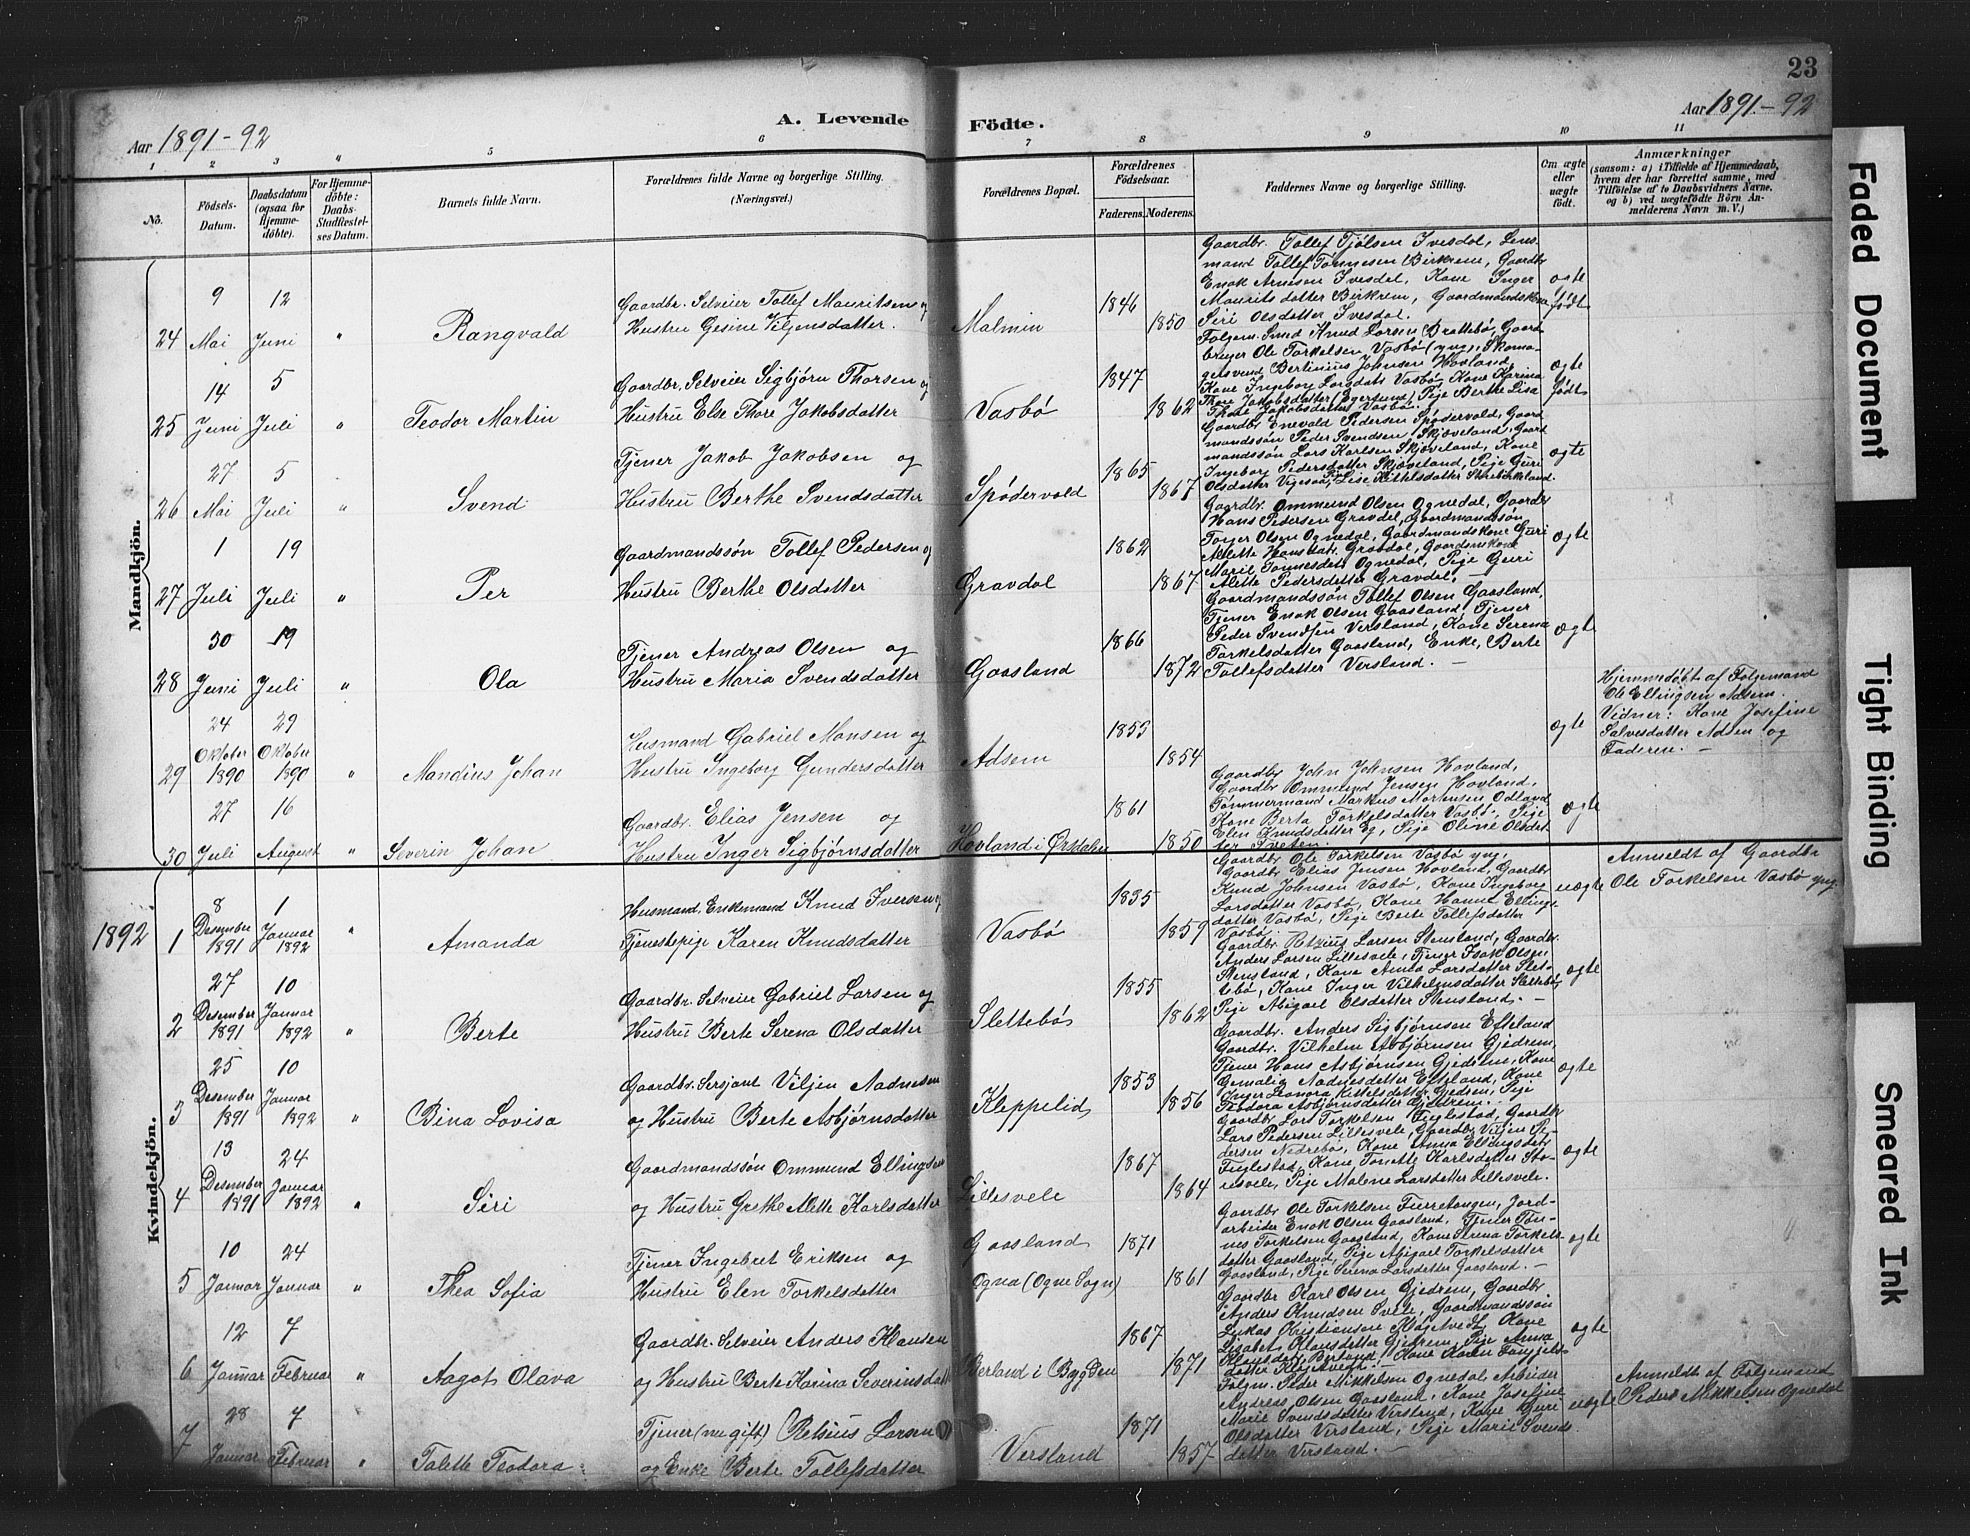 23
Aar 1891-92
A. Levende Födte.
Aar 1891-92
1 2 3 4 5 6 7 8 9 10 11
No.
Födsels-Datum.
Daabsdatum (ogsaa for Hjemmedöbte).
For Hjemmedöbte: Daabs-Stadfæstelses Datum.
Barnets fulde Navn.
Forældrenes fulde Navne og borgerlige Stilling. (Næringsvei.)
Forældrenes Bopæl.
Forældrenes Födselsaar.
Faderens. Moderens.
Faddernes Navne og borgerlige Stilling.
Om ægte eller uægte födt.
Anmærkninger
(saasom: a) i Tilfælde af Hjemmedaab, hvem der har forrettet samme, med Tilföielse af to Daabsvidners Navne, og b) ved uægtefödte Börn Anmelderens Navn m. V.)
Mandkjön.
24 9 Mai 12 Juni " Rangvald
Gaardbr. Selveier Tollef Mauritsen og
Hustru Gesine Viljensdatter.
Malmin 1846 1850
Gaardbr. Tollef Tjölsen Ivesdal, Lens-
mand Tollef Tönnesen Birkrem, Gaardbr
Enok Arnesen Ivesdal, Kone Inger
Mauritsdatter Birkrem, Gaardmandskone
Siri Olsdatter Ivesdal.
ægte født
25 14 Juni 5 Juli " Teodor Martin
Gaardbr. Selveier Sigbjörn Thorsen og
Hustru Else Thore Jakobsdatter
Vasbö 1847 1862
Folgem. Smed Knud Larsen Brattebö, Gaard-
bruger Ole Torkelsen Vasbö (yng), Skoma-
gersvend Bertinius Johnsen Hovland,
Kone Ingeborg Larsdatr Vasbö, Kone Karina
Thore Jakobsdatter (Egersund) Pige Berthe Lisa
Thore Jakobsdatter Vasbö.
ægte født
26 27 Mai 5 Juli " Svend
Tjener Jakob Jakobsen og
Hustru Berthe Svendsdatter
Spödervold 1865 1867
Gaardbr. Enevald Pedersen Spödervold, Gaard-
mandssön Peder Svendsen Skjæveland, Gaard
mandssön Lars Karlsen Skjæveland, Kone
Ingeborg Pedersdatter Skjæveland, Pige Guri
Olsdatter Vigesaa, Pige Lise Kittelsdatter Storebirkland.
ægte
27 1 Juli 19 Juli " Per
Gaardmandssön Tollef Pedersen og
Hustru Berthe Olsdatter
Gravdal 1862 1867
Gaardbr. Ommund Olsen Ognedal, Gaardbr
Hans Pedersen Gravdal, Gaardmandssön
Torger Olsen Ognedal, Gaardmandskone Guri
Alette Hansdatr. Gravdal, Gaardmskone
Marie Tönnesdatr Ognedal, Pige Guri
Alette Pedersdatter Gravdal. —
ægte
28 30 Juni 19 Juli " Ola
Tjener Andreas Olsen og
Hustru Maria Svendsdatter
Gaasland 1866 1872
Gaardmandssön Tollef Olsen Gaasland,
Tjener Enok Olsen Gaasland, Tjener
Peder Svendsen Versland, Kone Serena
Torkelsdatter Gaasland, Enke, Berte
Tollefsdatter Versland. —
ægte
29 24 Oktober 1890 29 Oktober 1890 " Mandius Johan
Husmand Gabriel Monsen og
Hustru Ingeborg Gundersdatter
Adsem 1853 1854
ægte
Hjemmedøbt af Folgemand
Ole Ellingsen Adsem.
Vidner: Kone Josefine
Salvesdatter Adsem og
Faderen. —
30 27 Juli 16 August " Severin Johan
Gaardbr. Elias Jensen og
Hustru Inger Sigbjörnsdatter
Hovland i Örsdalen 1861 1850
Gaardbr John Johnsen Hovland,
Gaardbr Ommund Jensen Hovland,
Tömmermand Markus Mortensen Odland,
Kone Berta Torkelsdatter Vasbö, Pige
Elen Knudsdatter Eg, Pige Oline Olsdat-
ter Sveten.
ægte
Kvindekjön.
1892
1 8 Desember 1891 1 Januar 1892 " Amanda
Husmand, Enkemand Knud Iversen og
Tjenestepige Karen Knudsdatter
Vasbö 1835 1859
Gaardbr Ole Torkelsen Vasbö yng.
Gaardbr Elias Jensen Hovland, Gaardbr
Knud Johnsen Vasbö, Kone Ingeborg
Larsdatter Vasbö, Kone Hanne Ellings-
datter Vasbö, Pige Berte Tollefsdatter
Vasbö.
uægte
Anmeldt af Gaardbr
Ole Torkelsen Vasbö yng.
2 27 Desember 1891 10 Januar 1892 " Berte
Gaardbr. Selveier Gabriel Larsen og
Hustru Berte Serena Olsdatter
Slettebö 1855 1862
Gaardbr. Retzius Larsen Stensland, Gaardbr.
Anders Larsen Lillesvele, Tjener Isak Olsen
Stensland, Kone Anna Larsdatter Slet-
tebö, Kone Inger Vilhelmsdatter Slettebö,
Pige Abigael Olsdatter Stensland. —
ægte
3 25 Desember 1891 10 Januar 1892 " Bina Lovisa
Gaardbr. Sersjant Viljen Aadnesen
og Hustru Berte Asbjörnsdatter
Kleppelid 1853 1856
Gaardbr. Anders Sigbjörnsen Efteland
Gaardbr. Vilhelm Asbjörnsen Gjedrem,
Tjener Hans Asbjörnsen Gjedrem, Kone
Gemalie Aadnesdatter Efteland, Kone
Inger Leonora Kittelsdatter Gjedrem, Pige
Teodora Asbjörnsdatter Gjedrem. —
ægte
4 13 Desember 1891 24 Januar 1892 " Siri
Gaardmandssön Ommund Ellingsen
og Hustru Grethe Alette Karlsdatter
Lillesvele 1867 1864
Gaardbr Lars Torkelsen Fuglestad, Gaardbr
Lars Pedersen Lillesvele, Gaardbr Viljen Pe-
dersen Nedrebö, Kone Anna Ellingsdatr
Fuglestad, Kone Tonette Karlsdatter Sto-
resvele, Pige Malene Larsdatter Lillesvele.
ægte
5 10 Januar 24 Januar " Thea Sofia
Tjener Ingebret Eriksen og
Hustru Elen Torkelsdatter
Gaasland
Ogna (Ogne Sogn) 1871 1861
Gaardbr Ole Torkelsen Fierretangen, Jord-
arbeider Enok Olsen Gaasland, Tjener Tön-
nes Torkelsen Gaasland, Kone Serena Torkels-
datter Gaasland, Pige Abigael Torkelsdatter
Gaasland, Pige Serena Larsdatter Gaasland. —
ægte
6 12 Januar 7 Februar " Aagot Olava
Gaardbr. Selveier Anders Hansen
og Hustru Berte Karina Severinsdatt
Berland i Bygden 1867 1871
Gaardbr Karl Olsen Gjedrem, Gaardbr
Anders Knudsen Svele, Gaardmandssön
Lukas Kristiansen Klögetvedt, Kone
Lisabet Klausdatter Gjedrem, Pige Anna
Hansdatr Berland, Kone Karen
datter Klögetvedt. —
ægte
7 28 Januar 7 Februar " Talette Teodora
Tjener (nu gift) Retsius Larsen
og Enke Berte Tollefsdatter
Versland 1871 1857
Folgm. Peder Mikkelsen Ognedal, Arbeider
Andreas Olsen Gaasland, Kone Josefine
Marie Svendsdatter Verslnd, Kone Guri
Olsdatter Versland, Pige Marie Svends-
datter Versland. —
uægte
Anmeldt af Folgemand
Peder Mikkelsen Ognedal
Faded Document
Tight Binding
Smeared Ink